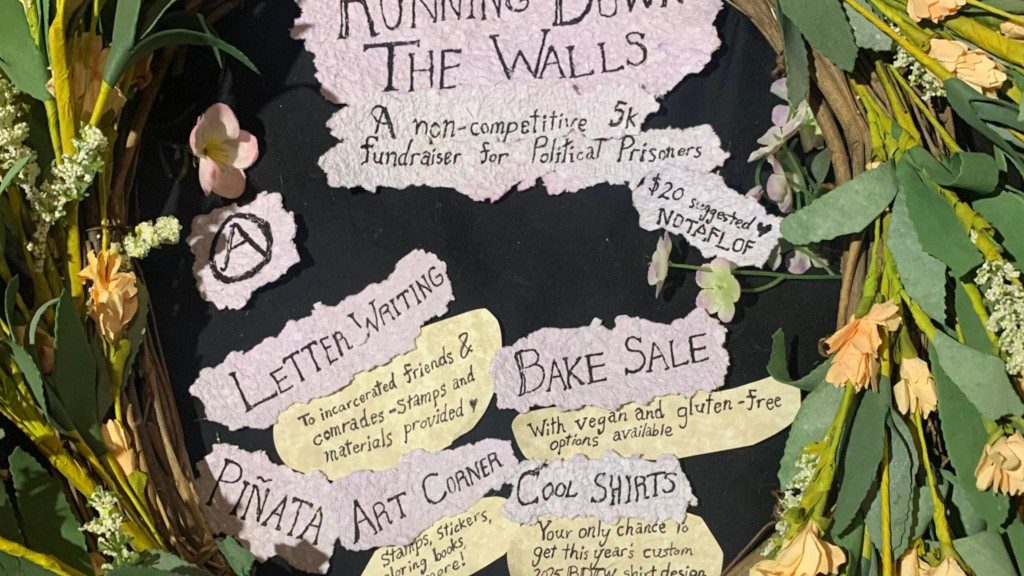 RUNNING DOWN
THE WALLS
A non-competitive 5k
fundraiser for Political Prisoners
$20 suggested ♥
NOTAFLOF
A
LETTER WRITING
To incarcerated friends &
comrades-Stamps and
materials provided ♥
BAKE SALE
With vegan and gluten-free
options available
PIÑATA
ART CORNER
Stamps, stickers,
more!
COOL SHIRTS
Your only chance to
get this year's custom
2025 RDTW shirt design